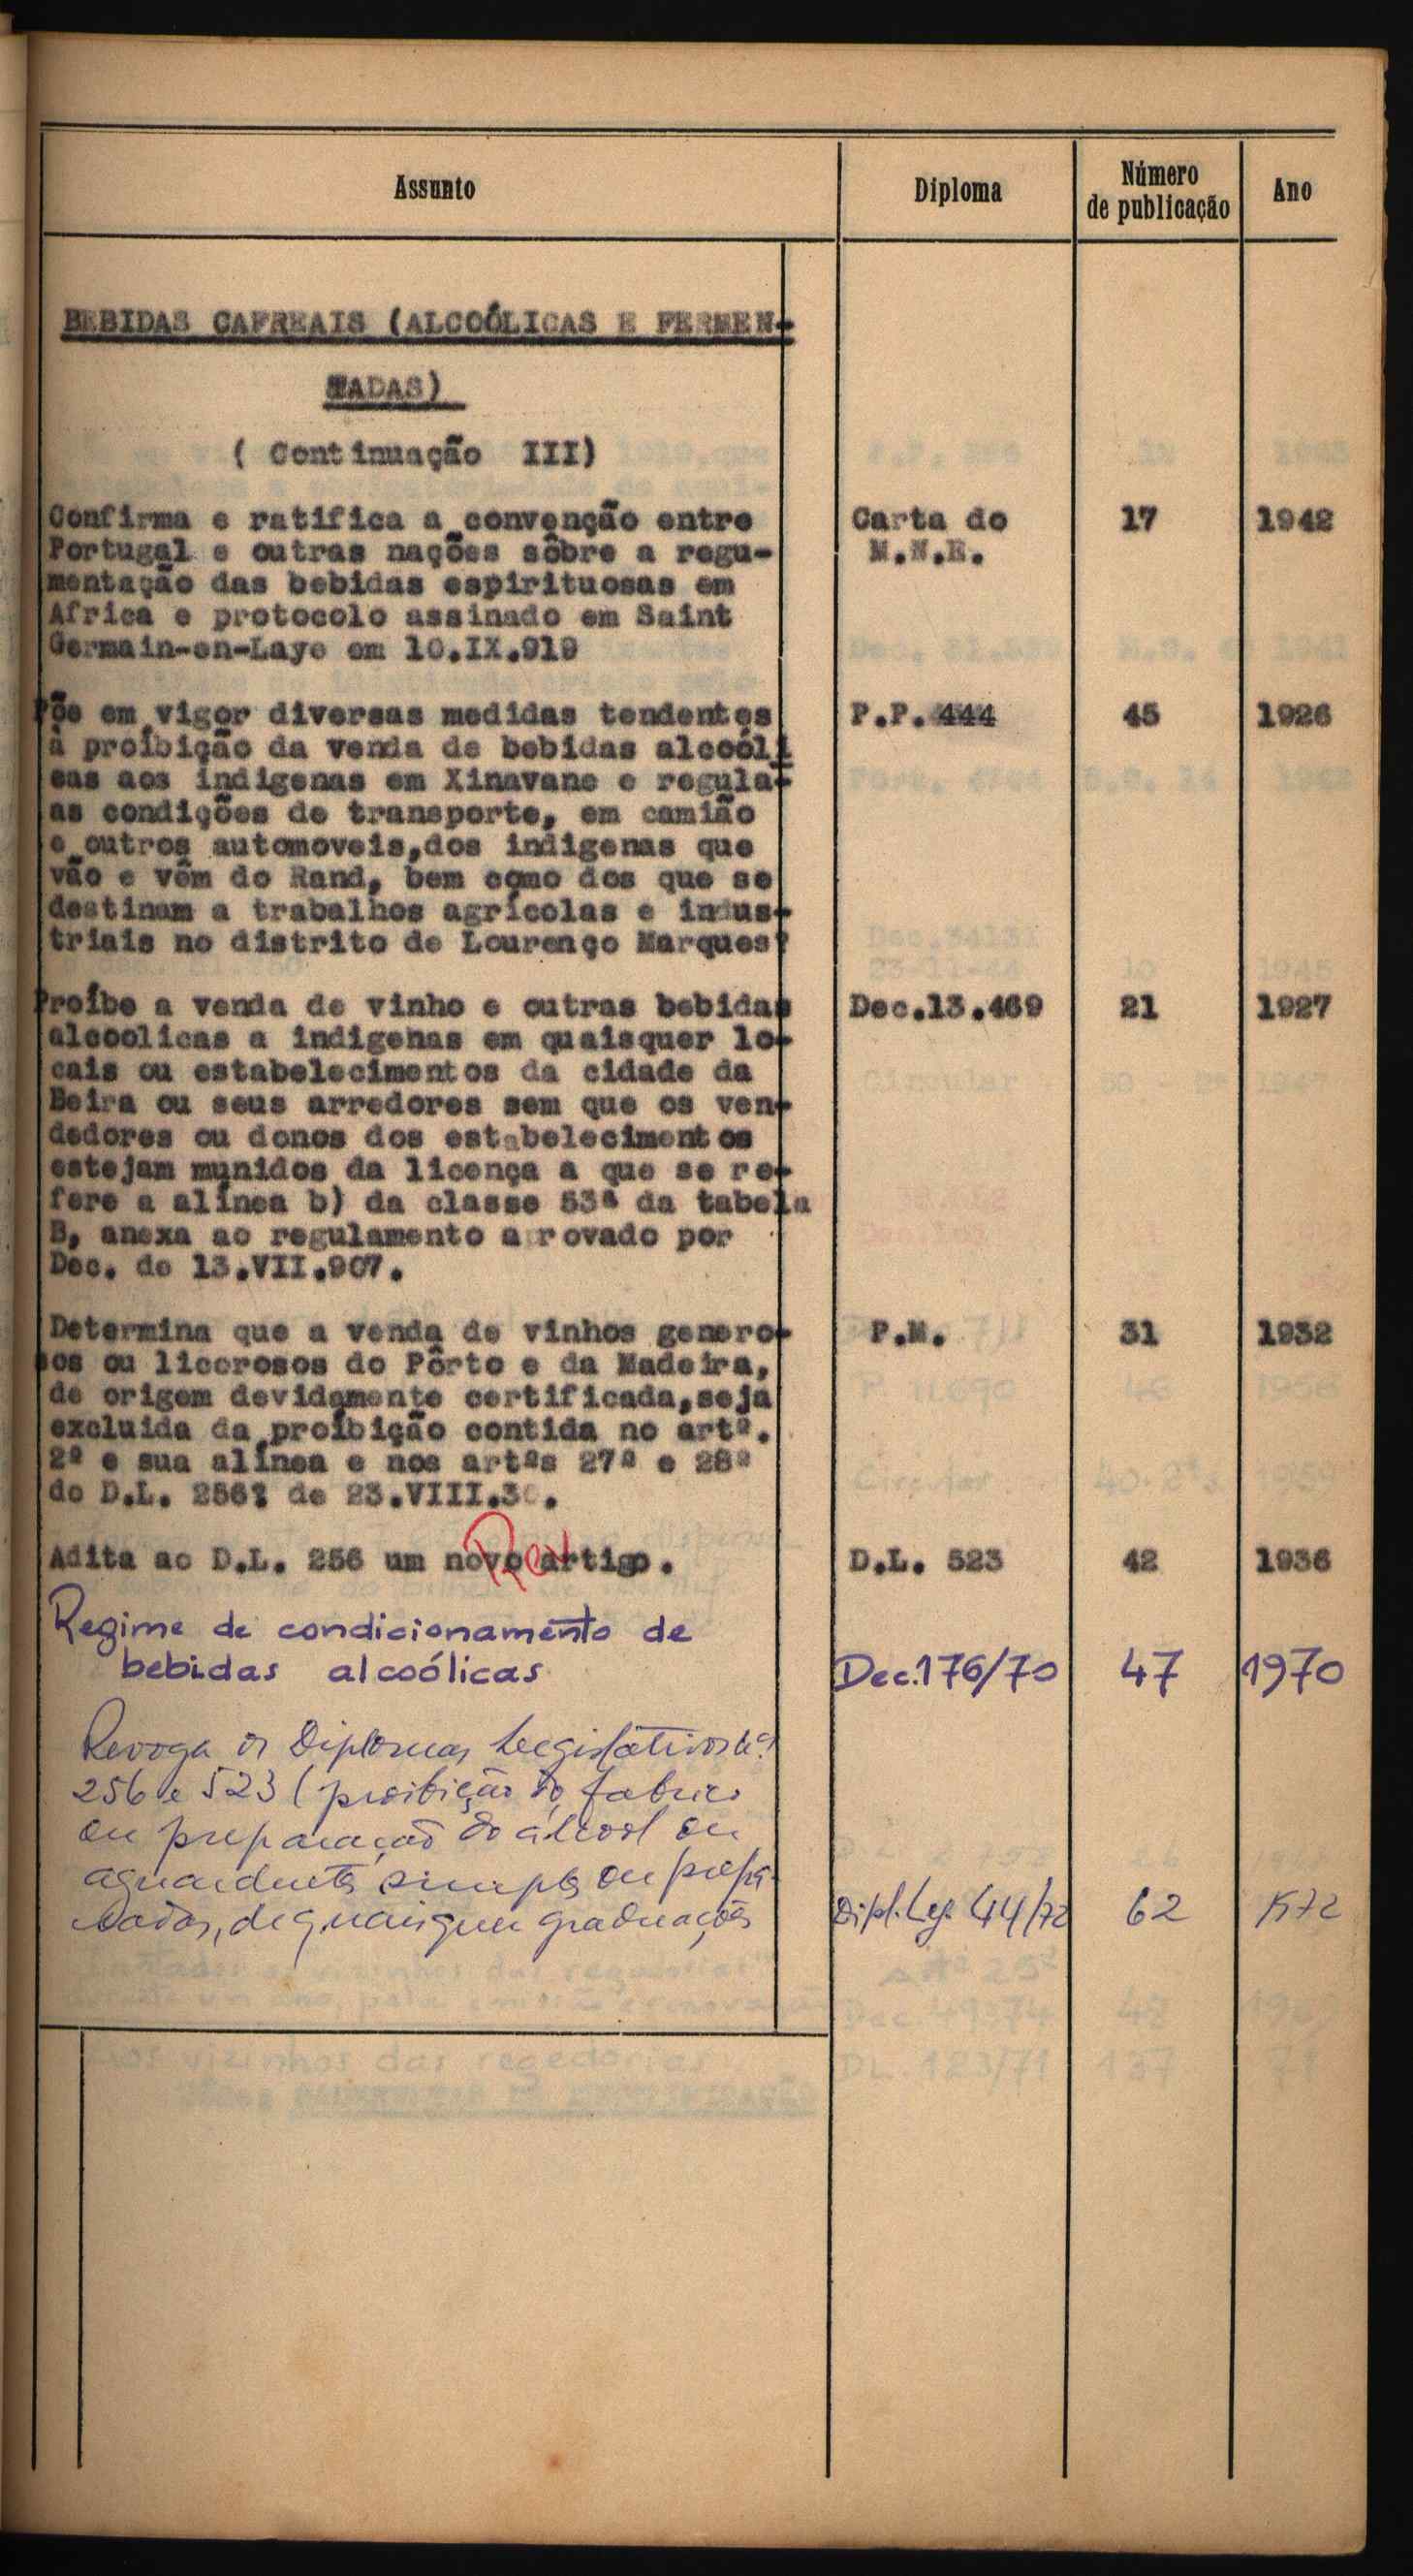 Assunto
Diploma
Número
de publicação
Ano
BEBIDAS CAFREAIS (ALCOÓLICAS E FERMEN-
TADAS)
( Continuação III)
Confirma e ratifica a convenção entre Carta do 17 1942
Portugal e outras nações sôbre a regu- M.N.E.
mentação das bebidas espirituosas em
Africa e protocolo assinado em Saint
Germain-en-Laye em 10.IX.919
Põe em vigor diversas medidas tendentes P.P. 444 45 1926
à proíbição da venda de bebidas alcoóli
cas aos indigenas em Xinavane e regula-
as condições de transporte, em camião
e outros automoveis,dos indigenas que
vão e vêm do Rand, bem como dos que se
destinam a trabalhos agrícolas e indus-
triais no distrito de Lourenço Marques
Proíbe a venda de vinho e outras bebidas Dec.13.469 21 1927
alcoolicas a indigenas em quaisquer lo-
cais ou estabelecimentos da cidade da
Beira ou seus arredores sem que os ven-
dedores ou donos dos estabelecimentos
estejam munidos da licença a que se re-
fere a alínea b) da classe 53ª da tabela
B, anexa ao regulamento aprovado por
Dec. de 13.VII.907.
Determina que a venda de vinhos genero- P.M. 31 1932
sos ou licorosos do Pôrto e da Madeira,
de origem devidamente certificada,seja
excluida da proíbição contida no artº.
2º e sua alínea e nos artºs 27º e 28º
do D.L. 256: de 23.VIII.30.
Adita ao D.L. 256 um novo artigo. D.L. 523 42 1936
Rev
Regime de condicionamento de
bebidas alcoólicas Dec.176/70 47 1970
Revoga os Diplomas Legislativos nºs
256 e 523 (proibição do fabrico
ou preparação do álcool ou
aguardentes simples ou prepa-
radas, de quaisquer graduações Dipl. Leg. 44/72 62 1972